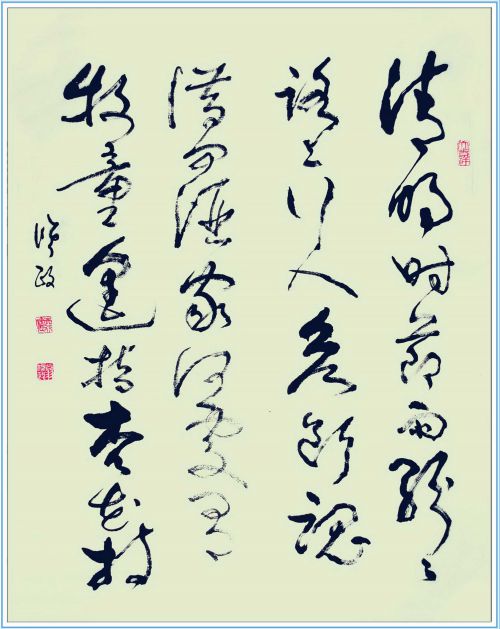 清明时节雨纷々
路上行人欲断魂
借问酒家何处有
牧童遥指杏花村
政